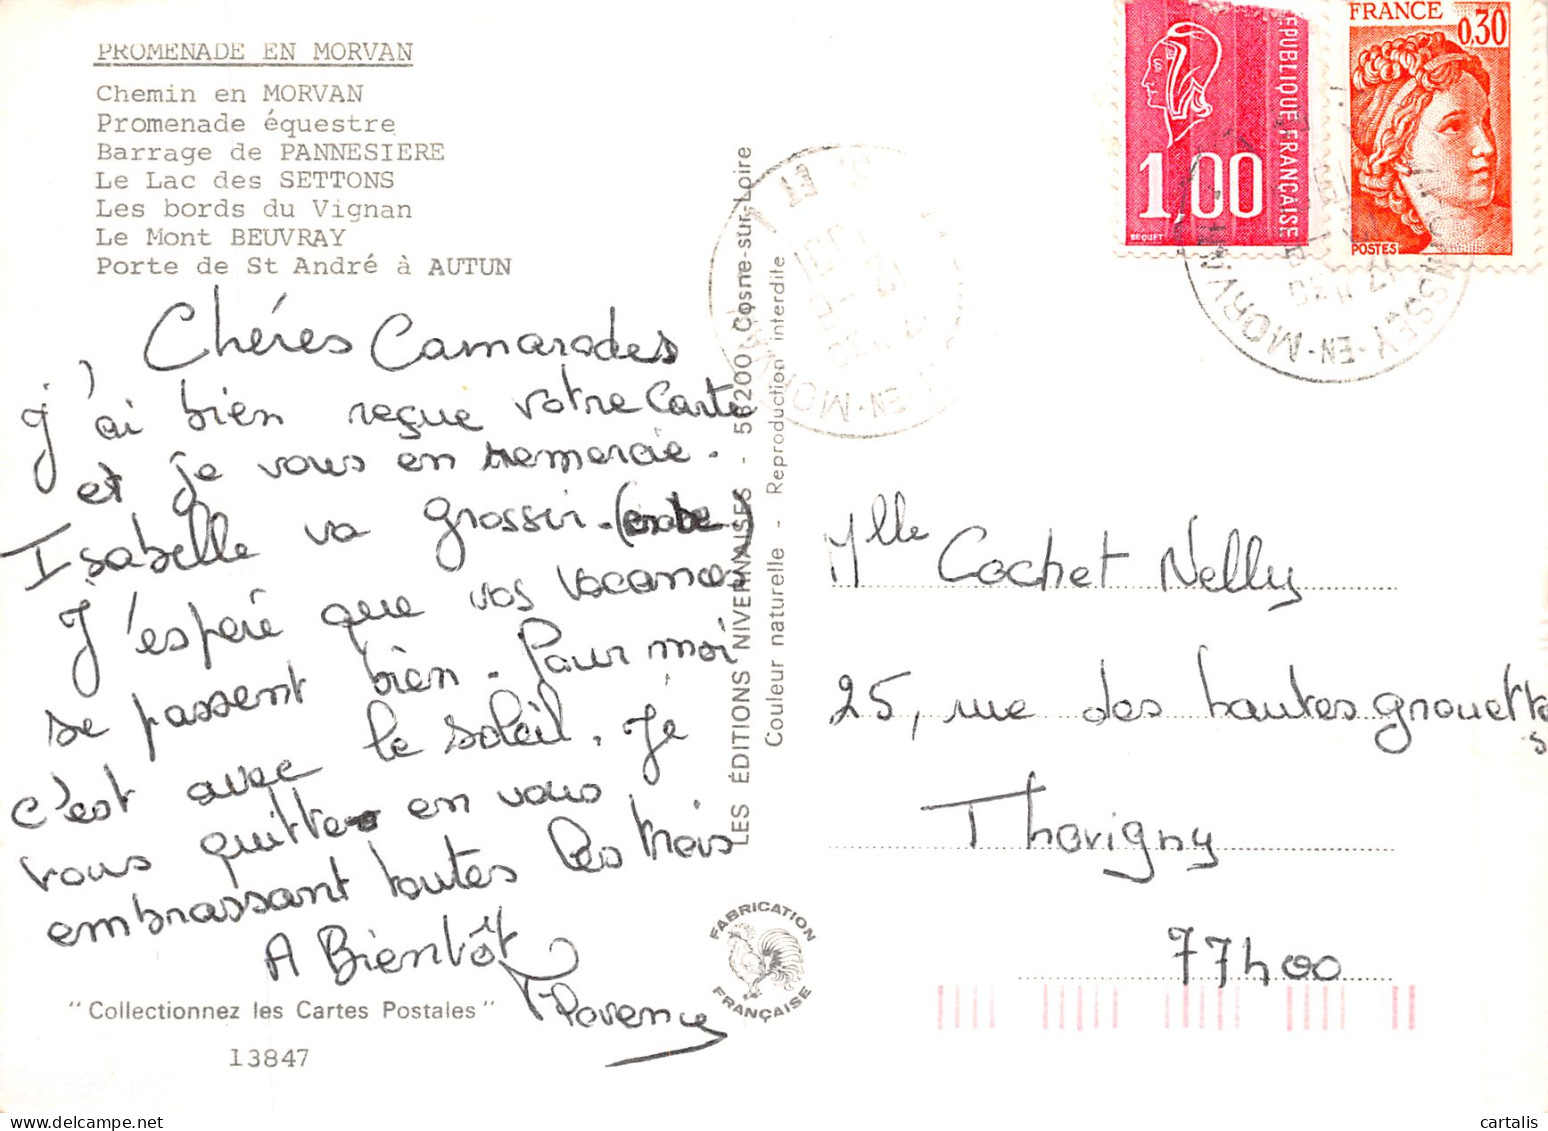 PROMENADE EN MORVAN
Chemin en MORVAN
Promenade équestre
Barrage de PANNESIERE
Le Lac des SETTONS
Les bords du Vignan
Le Mont BEUVRAY
Porte de St André à AUTUN
Chéres Camarades
J'ai bien reçue votre Carte
et je vous en remercie.
Isabelle va grossir.
J'espére que vos vacances
se passent bien. Pour moi
c'est avec le soleil. Je
vous quitte en vous
embrassant toutes les trois
A Bientôt
Florence
"Collectionnez les Cartes Postales"
13847
LES ÉDITIONS NIVERNAISES - 58200 Cosne-sur-Loire
Couleur naturelle - Reproduction interdite
FABRICATION
FRANÇAISE
1,00
REPUBLIQUE FRANÇAISE
BEQUET
FRANCE
0,30
POSTES
EN-MORVAN
Mlle Cochet Nelly
25, rue des hautes grouettes
Thorigny
77400
cartalis